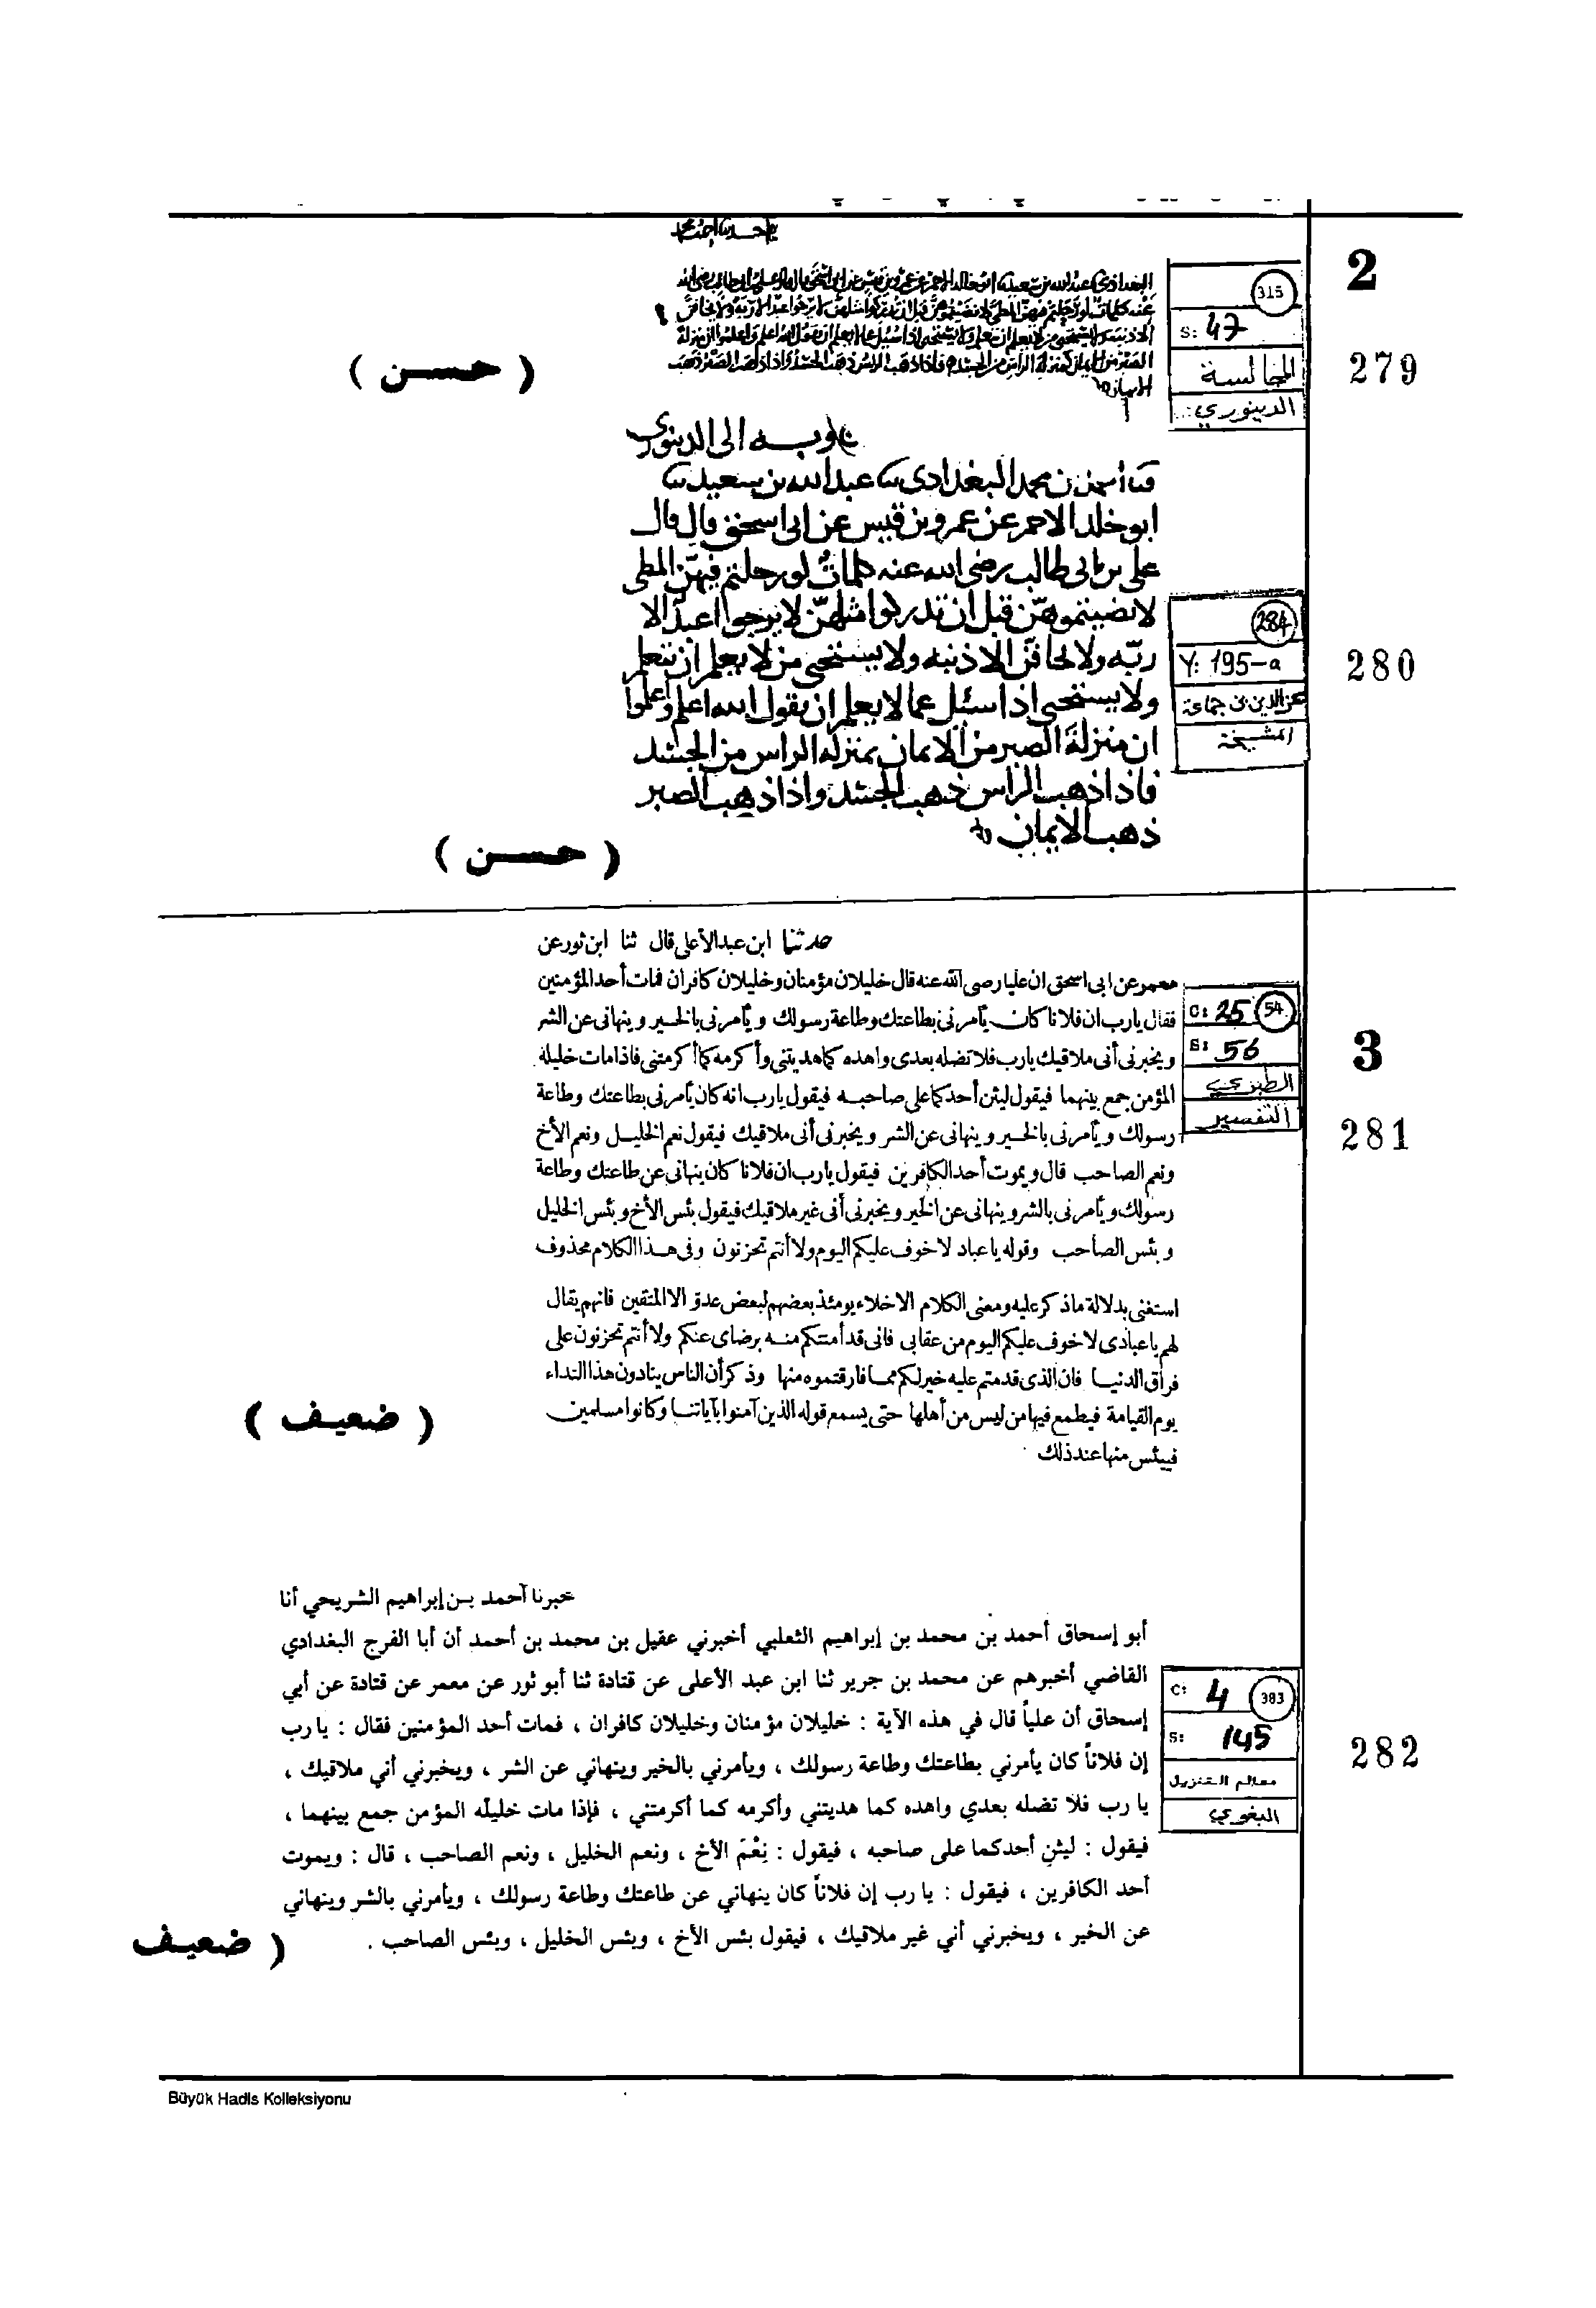 2
315
S: 47
279
المجالسة
الدينوري
حدثنا احمد بن محمد
البغدادي عبد الله بن سعيد ابو خالد الاحمر عن عمرو بن قيس عن ابي اسحق قال قال علي بن ابي طالب رضي الله
عنه كلمات لو رحلتم فيهن المطي لا تدركوا مثلهن لا يرجوا عبد الا ربه ولا يخافن
الا ذنبه ولا يستحي من لا يعلم ان يتعلم ولا يستحي اذا سئل عما لا يعلم ان يقول الله اعلم واعلموا ان منزلة
الصبر من الايمان كمنزلة الراس من الجسد فاذا ذهب الراس ذهب الجسد واذا ذهب الصبر ذهب
الايمان
( حسن )
وبه الى الدينوري
محمد البغدادي ثنا عبد الله بن سعيد ثنا
ابو خلد الاحمر عن عمرو بن قيس عن ابي اسحق قال قال
علي بن ابي طالب رضى الله عنه كلمات لو رحلتم فيهن المطى
لانضيتموهن قبل ان تدركوا مثلهن لا يرجوا عبد الا
ربه ولا يخافن الا ذنبه ولا يستحى من لا يعلم ان يتعلم
ولا يستحى اذا سئل عما لا يعلم ان يقول الله اعلم واعلموا
ان منزلة الصبر من الايمان بمنزلة الراس من الجسد
فاذا ذهب الراس ذهب الجسد واذا ذهب الصبر
ذهب الايمان
284
Y: 195-a
280
عز الدين بن جماعة
المشيخة
( حسن )
حدثنا ابن عبد الأعلى قال ثنا ابن ثور عن
معمر عن ابى اسحق ان عليا رضى الله عنه قال خليلان مؤمنان وخليلان كافران فمات أحد المؤمنين
فقال يارب ان فلانا كان يأمرنى بطاعتك وطاعة رسولك ويأمرنى بالخير وينهانى عن الشر
ويخبرنى أنى ملاقيك يارب فلا تضله بعدى واهده كما هديتنى وأكرمه كما أكرمتنى فاذا مات خليله
المؤمن جمع بينهما فيقول ليثن أحدكما على صاحبه فيقول يارب انه كان يأمرنى بطاعتك وطاعة
رسولك ويأمرنى بالخير وينهانى عن الشر ويخبرنى أنى ملاقيك فيقول نعم الخليل ونعم الأخ
ونعم الصاحب قال ويموت أحد الكافرين فيقول يارب ان فلانا كان ينهانى عن طاعتك وطاعة
رسولك ويأمرنى بالشر وينهانى عن الخير ويخبرنى أنى غير ملاقيك فيقول بئس الأخ وبئس الخليل
وبئس الصاحب وقوله يا عباد لا خوف عليكم اليوم ولا أنتم تحزنون وفى هذا الكلام محذوف
استغنى بدلالة ماذكر عليه ومعنى الكلام الاخلاء يومئذ بعضهم لبعض عدو الا المتقين فانهم يقال
لهم ياعبادى لا خوف عليكم اليوم من عقابى فانى قد أمنتكم منه برضاى عنكم ولا أنتم تحزنون على
فراق الدنيا فان الذى قدمتم عليه خير لكم مما فارقتموه منها وذكر أن الناس ينادون هذا النداء
يوم القيامة فيطمع فيها من ليس من أهلها حتى يسمع قوله الذين آمنوا بآياتنا وكانوا مسلمين
فييئس منها عند ذلك
C: 25 54
S: 56
3
الطبري
التفسير
281
( ضعيف )
خبرنا أحمد بن إبراهيم الشريحي أنا
أبو إسحاق أحمد بن محمد بن إبراهيم الثعلبي أخبرني عقيل بن محمد بن أحمد أن أبا الفرج البغدادي
القاضي أخبرهم عن محمد بن جرير ثنا ابن عبد الأعلى عن قتادة ثنا أبو ثور عن معمر عن قتادة عن أبي
إسحاق أن علياً قال في هذه الآية : خليلان مؤمنان وخليلان كافران ، فمات أحد المؤمنين فقال : يا رب
إن فلاناً كان يأمرني بطاعتك وطاعة رسولك ، ويأمرني بالخير وينهاني عن الشر ، ويخبرني أني ملاقيك ،
يا رب فلا تضله بعدي واهده كما هديتني وأكرمه كما أكرمتني ، فإذا مات خليله المؤمن جمع بينهما ،
فيقول : ليثنِ أحدكما على صاحبه ، فيقول : نِعْمَ الأخ ، ونعم الخليل ، ونعم الصاحب ، قال : ويموت
أحد الكافرين ، فيقول : يا رب إن فلاناً كان ينهاني عن طاعتك وطاعة رسولك ، ويأمرني بالشر وينهاني
عن الخير ، ويخبرني أني غير ملاقيك ، فيقول بئس الأخ ، وبئس الخليل ، وبئس الصاحب .
C: 4 383
S: 145
282
معالم التنزيل
البغوي
( ضعيف
Büyük Hadis Kolleksiyonu